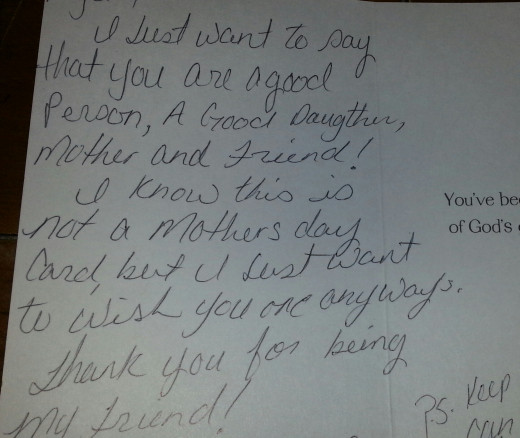 I Just want to say
that you are a good
Person, A Good Daugther,
Mother and Friend!
I Know this is
not a Mothers day
Card, but I Just want
to wish you one anyways.
Thank you for being
my friend!
You've be
of God's
P.S. Keep